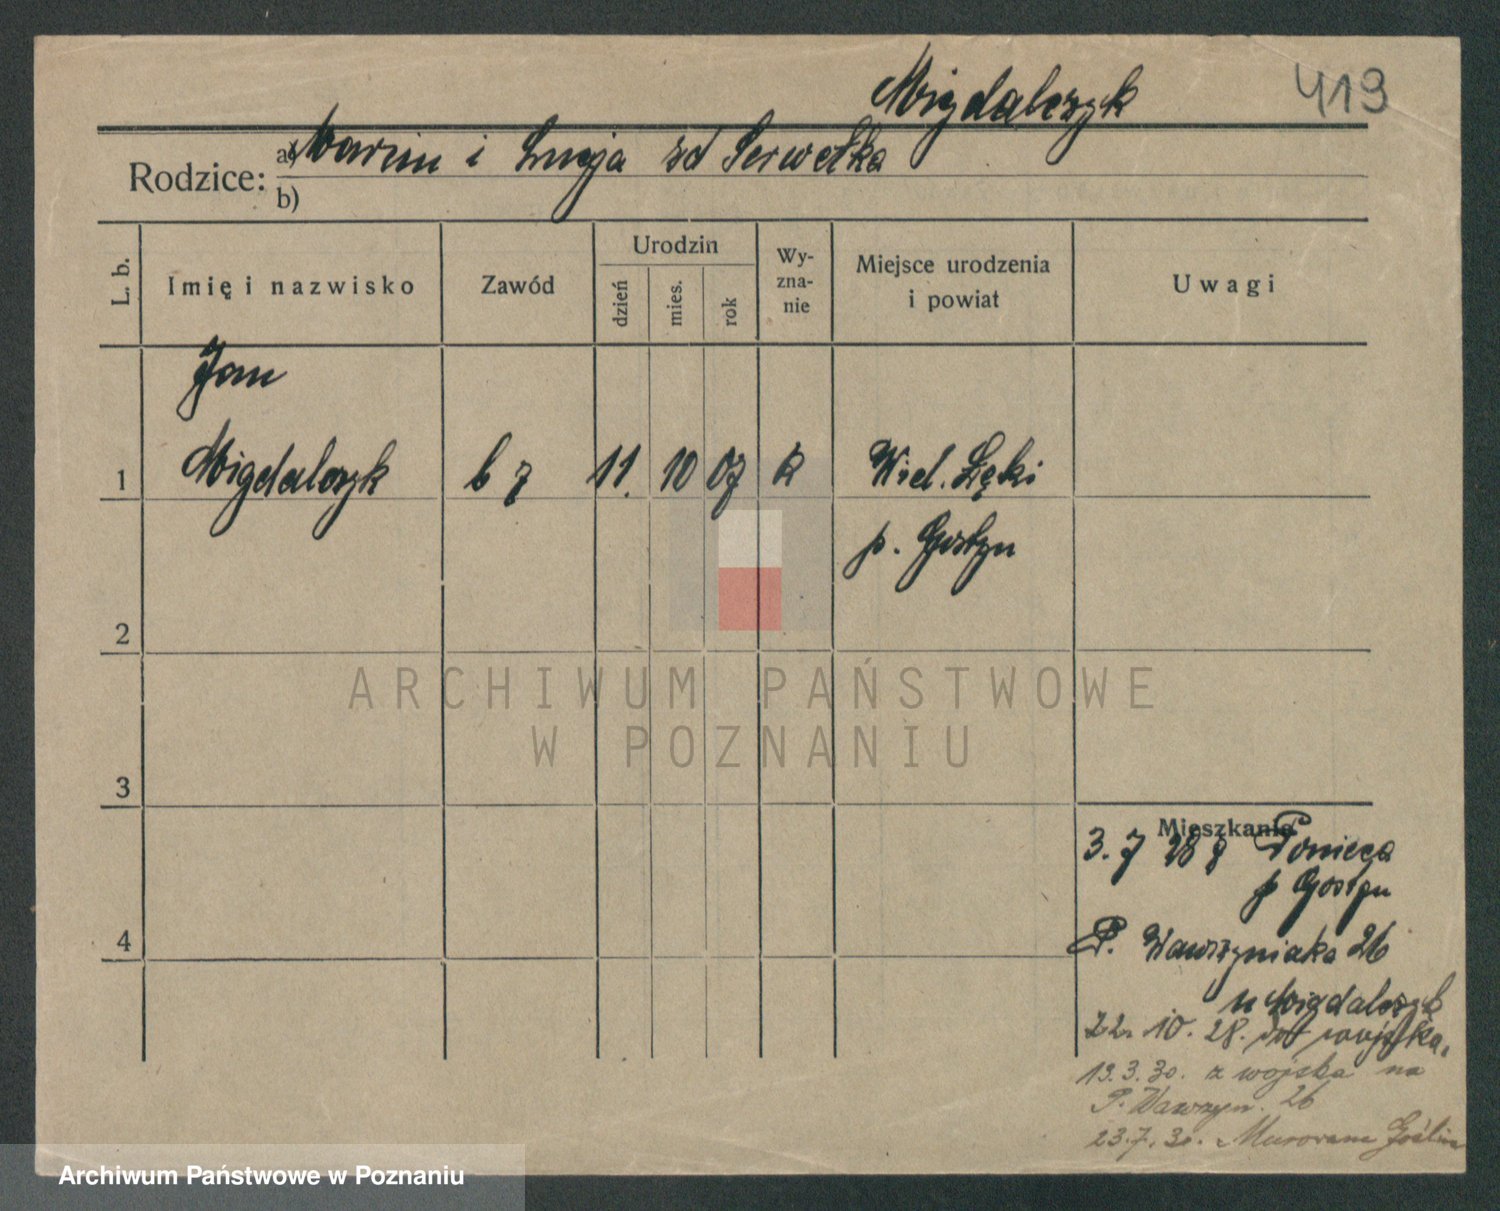 Migdalczyk 419
Rodzice: a) Marcin i Łucja zd Serwetka
b)
L. b. Imię i nazwisko Zawód Urodzin dzień mies. rok Wy-zna-nie Miejsce urodzenia i powiat Uwagi
Jan
1 Migdalczyk b z 11. 10 07 k Wiel. Łęki
p. Gostyn
2
3
Mieszkanie
3. 7 28 z Ponieca
p Gostyn
4 P. Wawrzyniaka 26
u Migdalczyk
22. 10. 28. do wojska.
19.3.30. z wojska na
P. Wawrzyn. 26
23.7.30. Murowana Goślina
ARCHIWUM PAŃSTWOWE
W POZNANIU
Archiwum Państwowe w Poznaniu